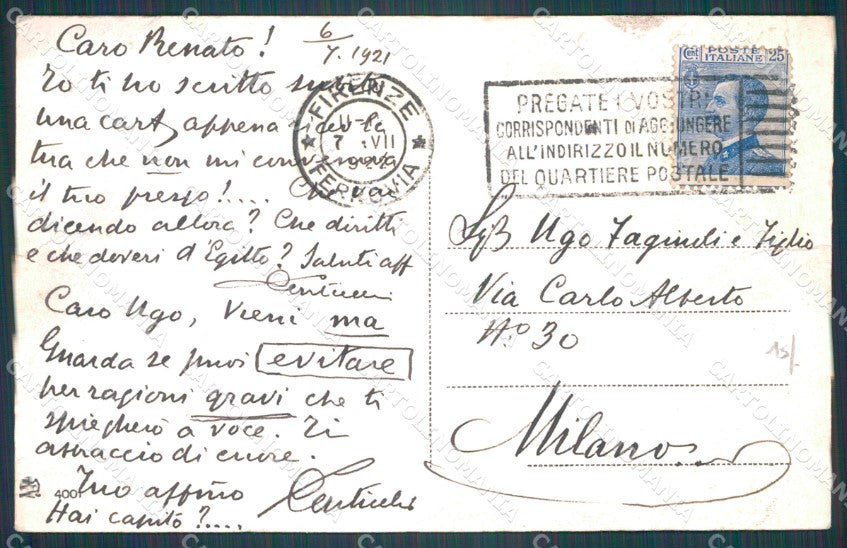 Caro Renato! 6/7. 1921
Io ti ho scritto subito
una cart. appena
tua che non mi conveniva
il tuo prezzo!....
dicendo allora? Che diritti
e che doveri d'Egitto? Saluti aff
Caro Ugo, vieni ma
Guarda se puoi evitare
per ragioni gravi che ti
spiegherò a voce. Ti
abbraccio di cuore.
Tuo affmo
Hai capito?....
4001
FIRENZE
FERROVIA
7 VII
PREGATE I VOSTRI
CORRISPONDENTI DI AGGIUNGERE
ALL'INDIRIZZO IL NUMERO
DEL QUARTIERE POSTALE
Cent POSTE 25
ITALIANE
Ugo Figlio
Via Carlo Alberto
No. 30
Milano
CARTOLINOMANIA